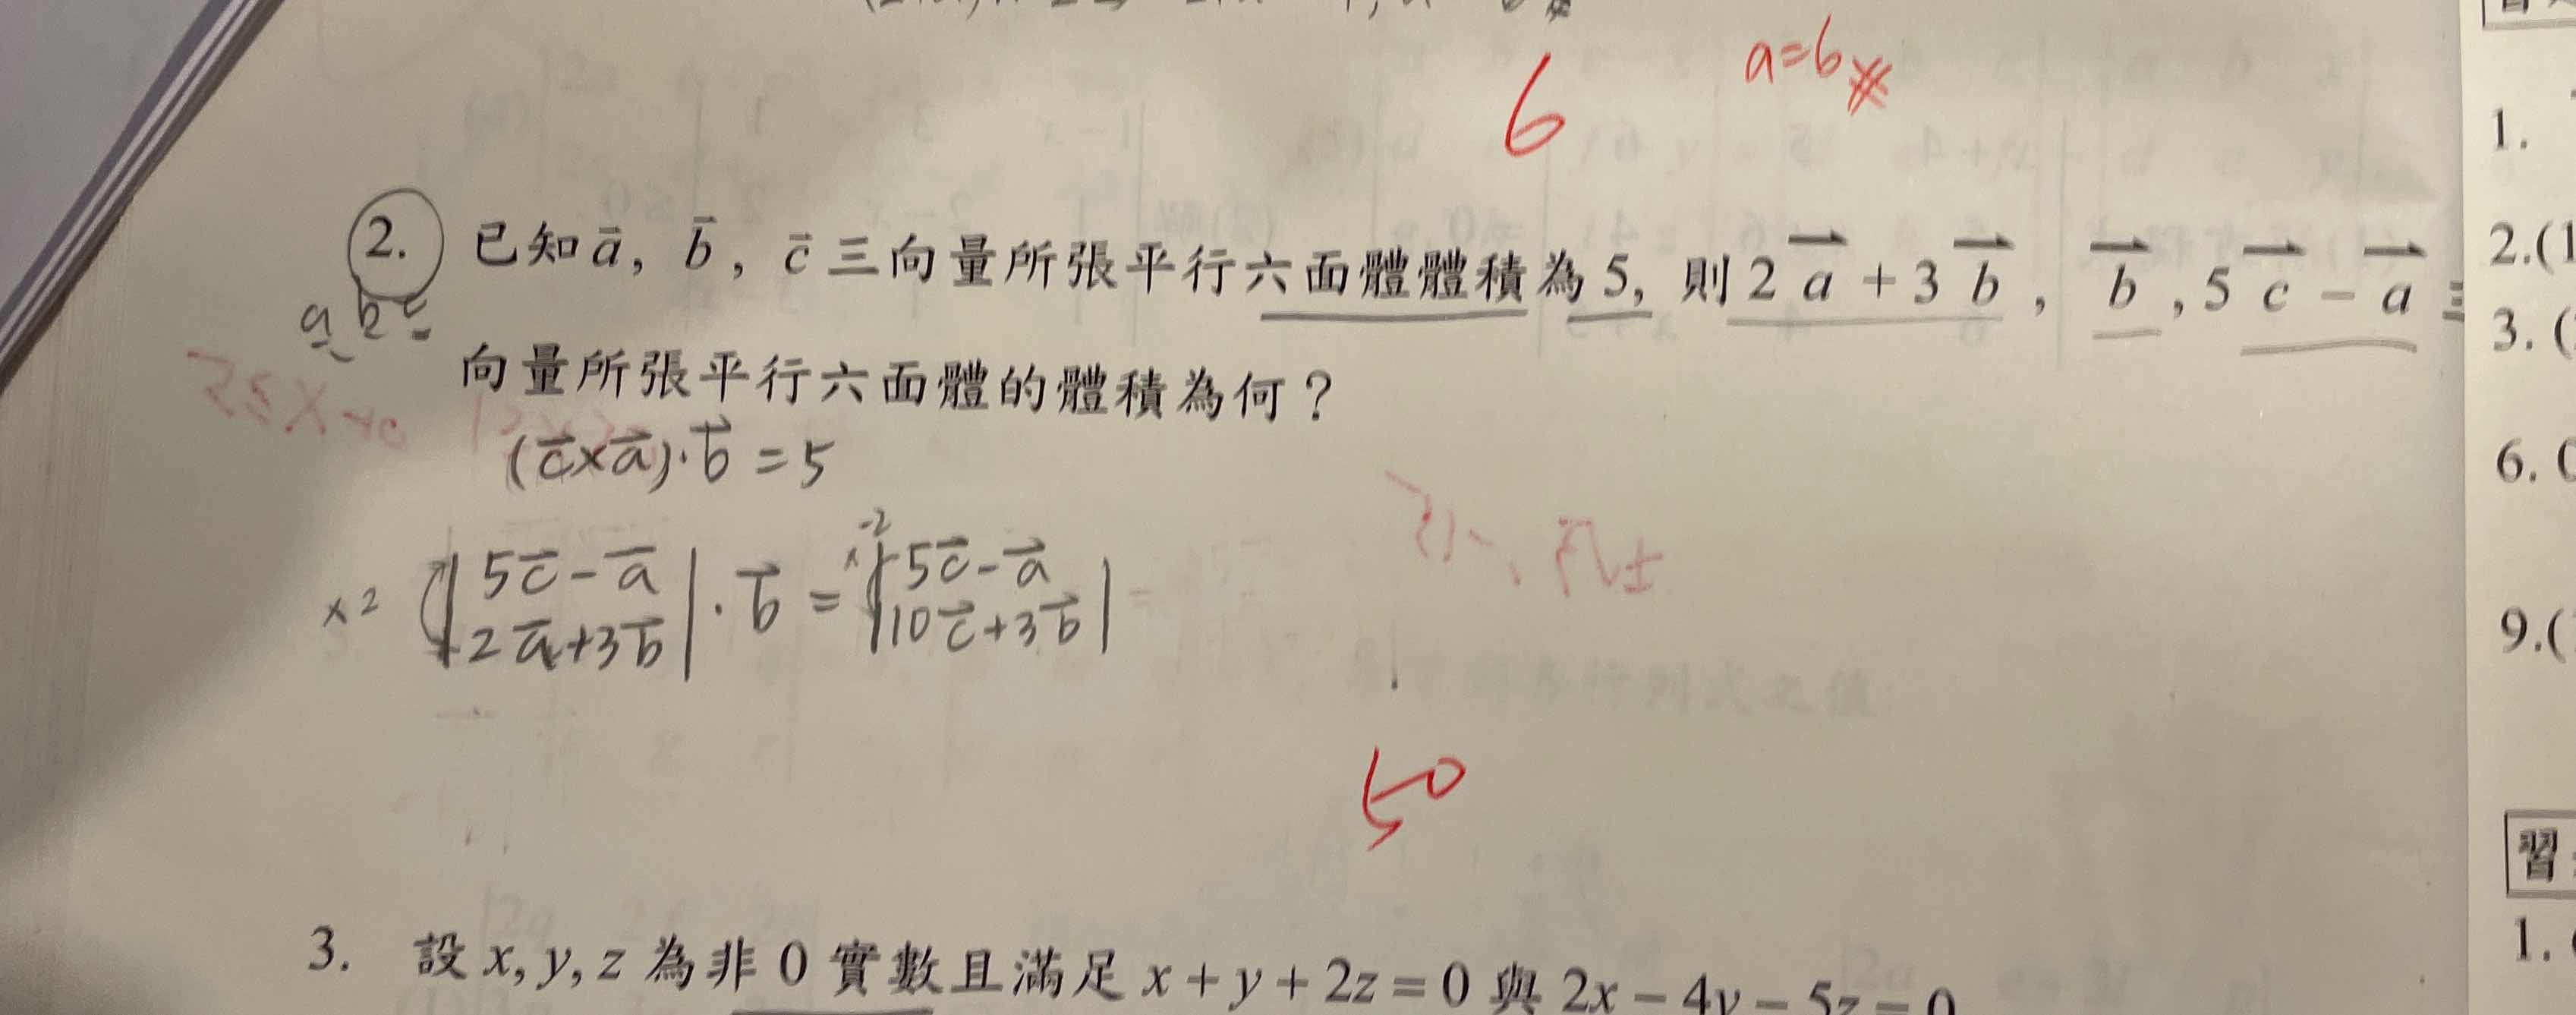 a=6
6
2. 已知 a⃗, b⃗, c⃗ 三向量所張平行六面體體積為 5, 則 2a⃗ + 3b⃗, b⃗, 5c⃗ − a⃗ 三
a b c
向量所張平行六面體的體積為何?
(c⃗×a⃗)·b⃗ = 5
×2 |5c⃗−a⃗ · b⃗ = ×-2 |5c⃗−a⃗
2a⃗+3b⃗| |10c⃗+3b⃗|
50
3. 設 x, y, z 為非 0 實數且滿足 x + y + 2z = 0 與 2x − 4y − 5z = 0
1.
2.(1
3. (
6. (
9.(
習
1.